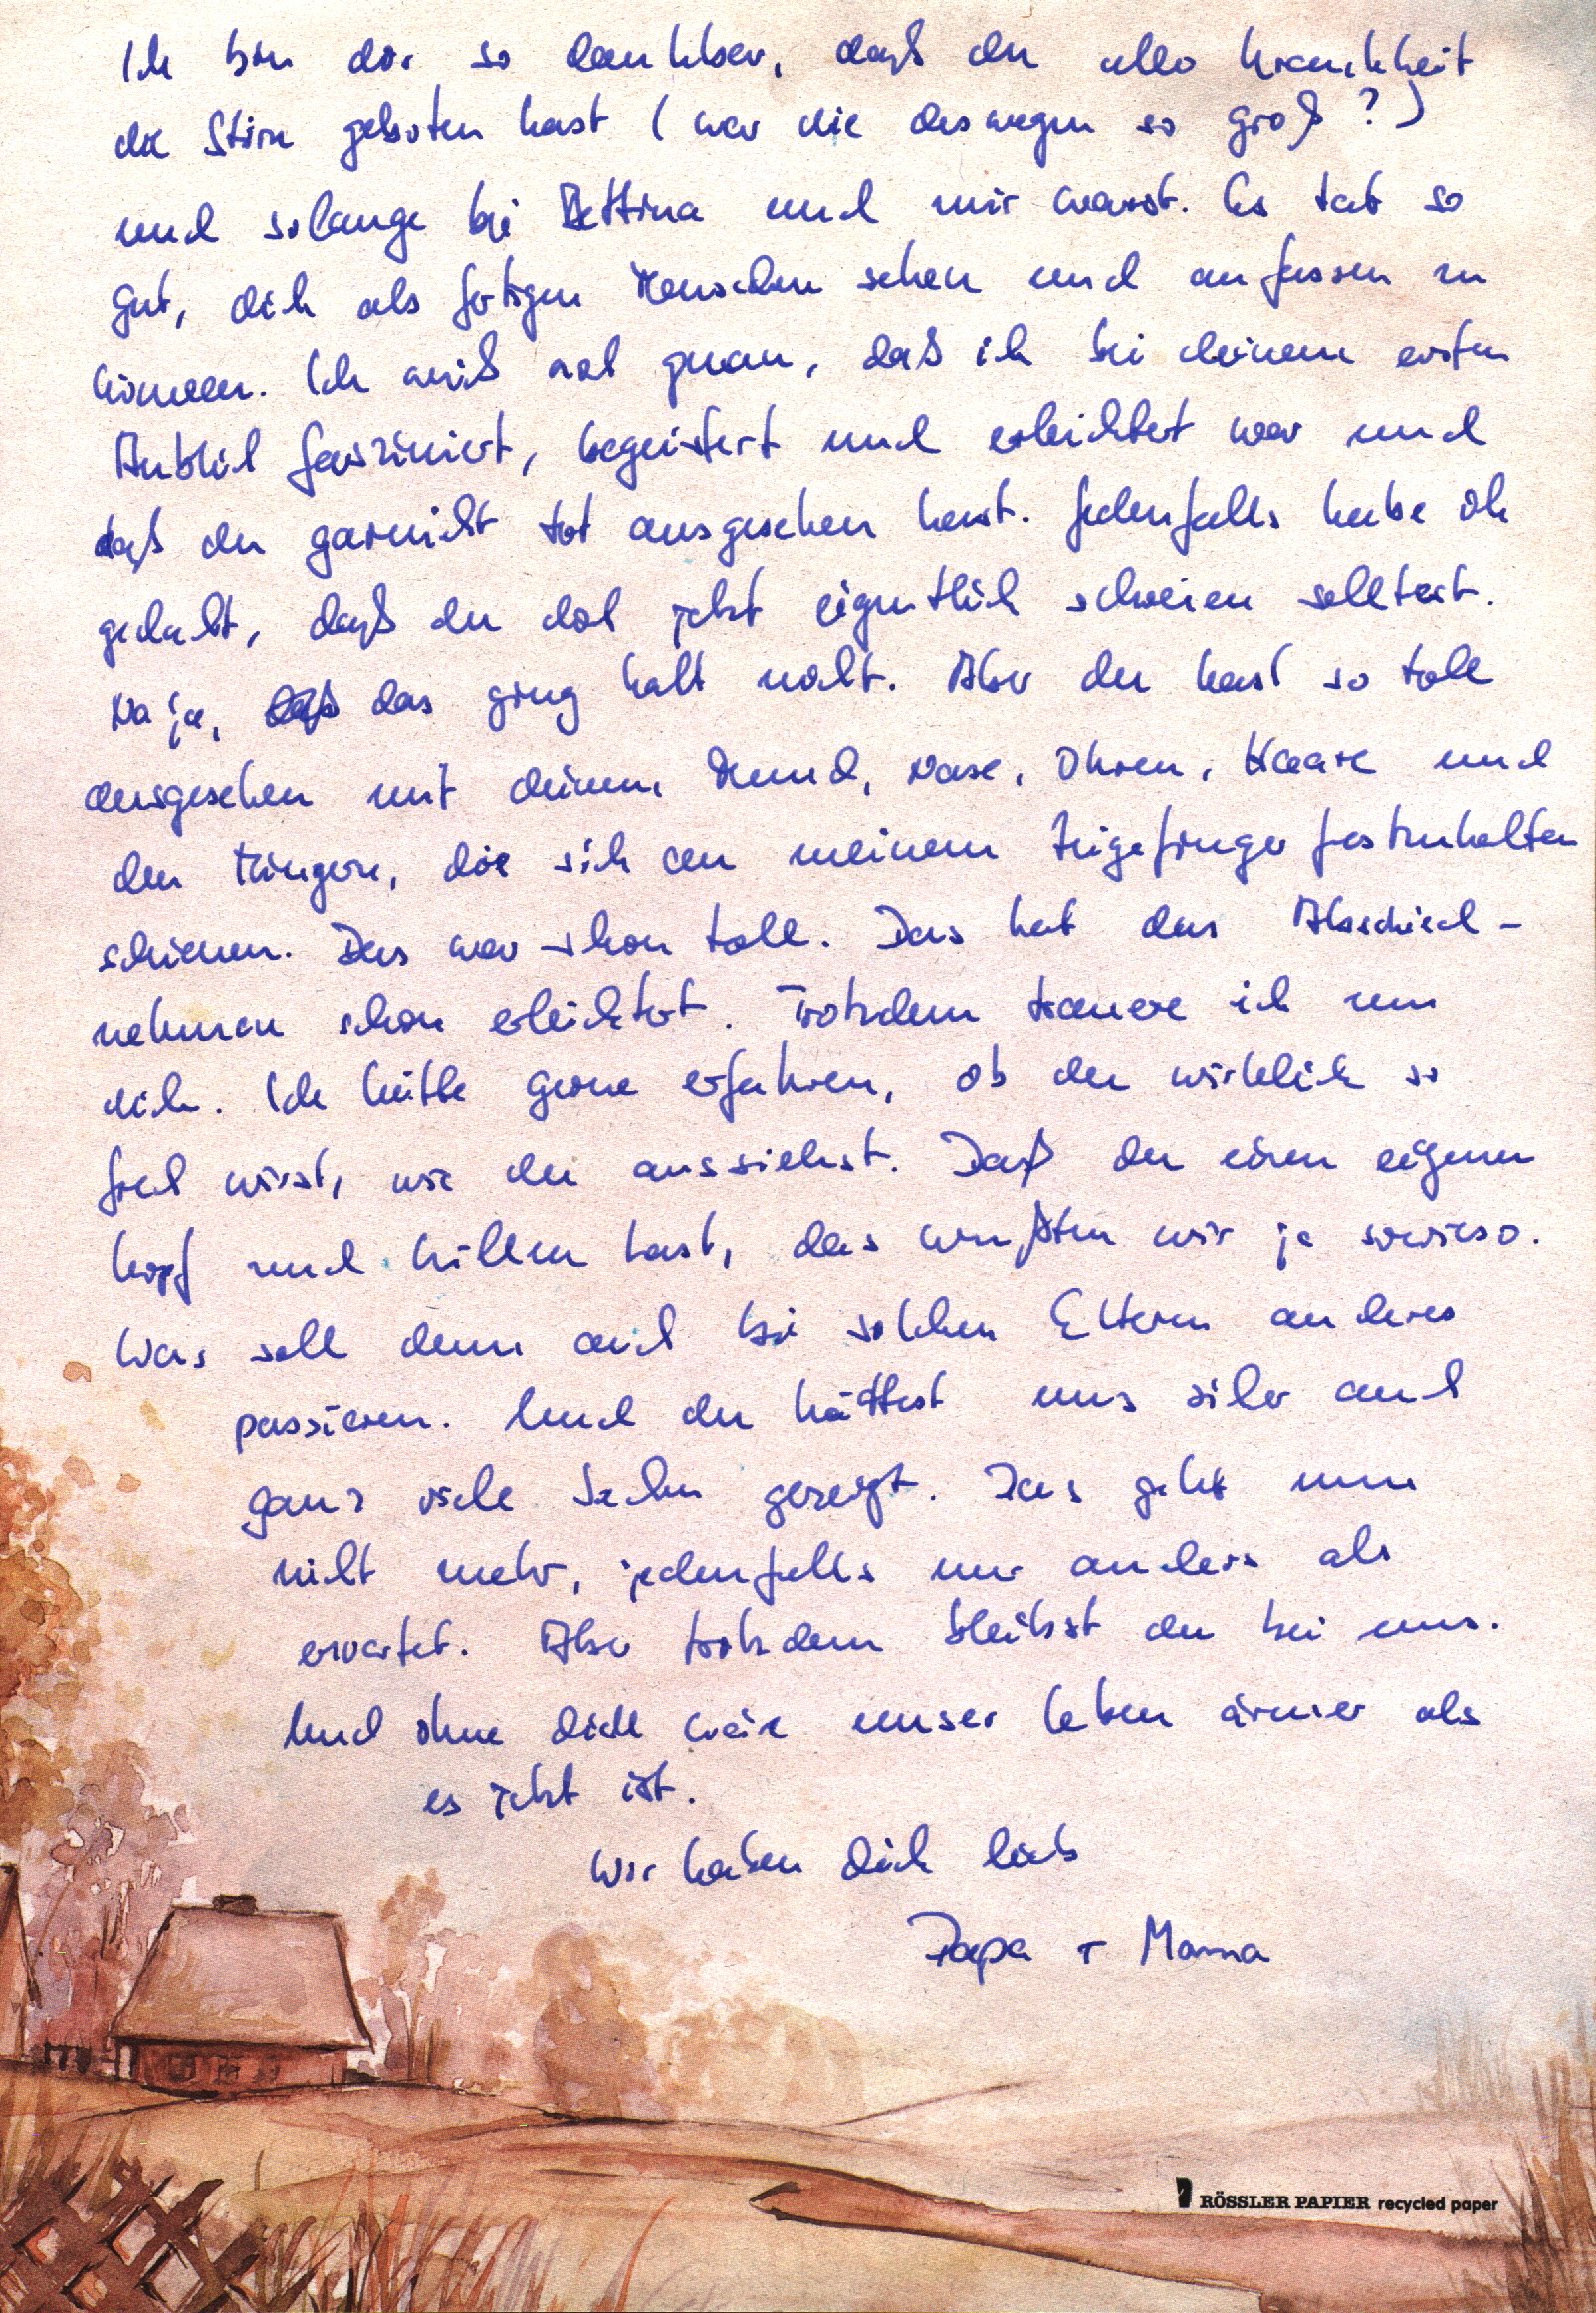 Ich bin dir so dankbar, daß du aller Krankheit
die Stirn geboten hast (war die deswegen so groß?)
und solange bei Bettina und mir warst. Es tat so
gut, dich als fertigen Menschen sehen und anfassen zu
können. Ich weiß noch genau, daß ich bei deinem ersten
Anblick fasziniert, begeistert und erleichtert war und
daß du garnicht tot ausgesehen hast. Jedenfalls habe ich
gedacht, daß du doch jetzt eigentlich schreien solltest.
Na ja, das ging halt nicht. Aber du hast so toll
ausgesehen mit deinem Mund, Nase, Ohren, Haare und
den Fingern, die sich an meinem Zeigefinger festzuhalten
schienen. Das war schon toll. Das hat das Abschied-
nehmen schon erleichtert. Trotzdem trauere ich um
dich. Ich hätte gerne erfahren, ob du wirklich so
frech wirst, wie du aussiehst. Daß du einen eigenen
Kopf und Willen hast, das wußten wir ja sowieso.
Was soll denn auch bei solchen Eltern anderes
passieren. Und du hättest uns sicher auch
ganz viele Sachen gezeigt. Das geht nun
nicht mehr, jedenfalls nur anders als
erwartet. Aber trotzdem bleibst du bei uns.
Und ohne dich wäre unser Leben ärmer als
es jetzt ist.
Wir haben dich lieb
Papa + Mama
RÖSSLER PAPIER recycled paper